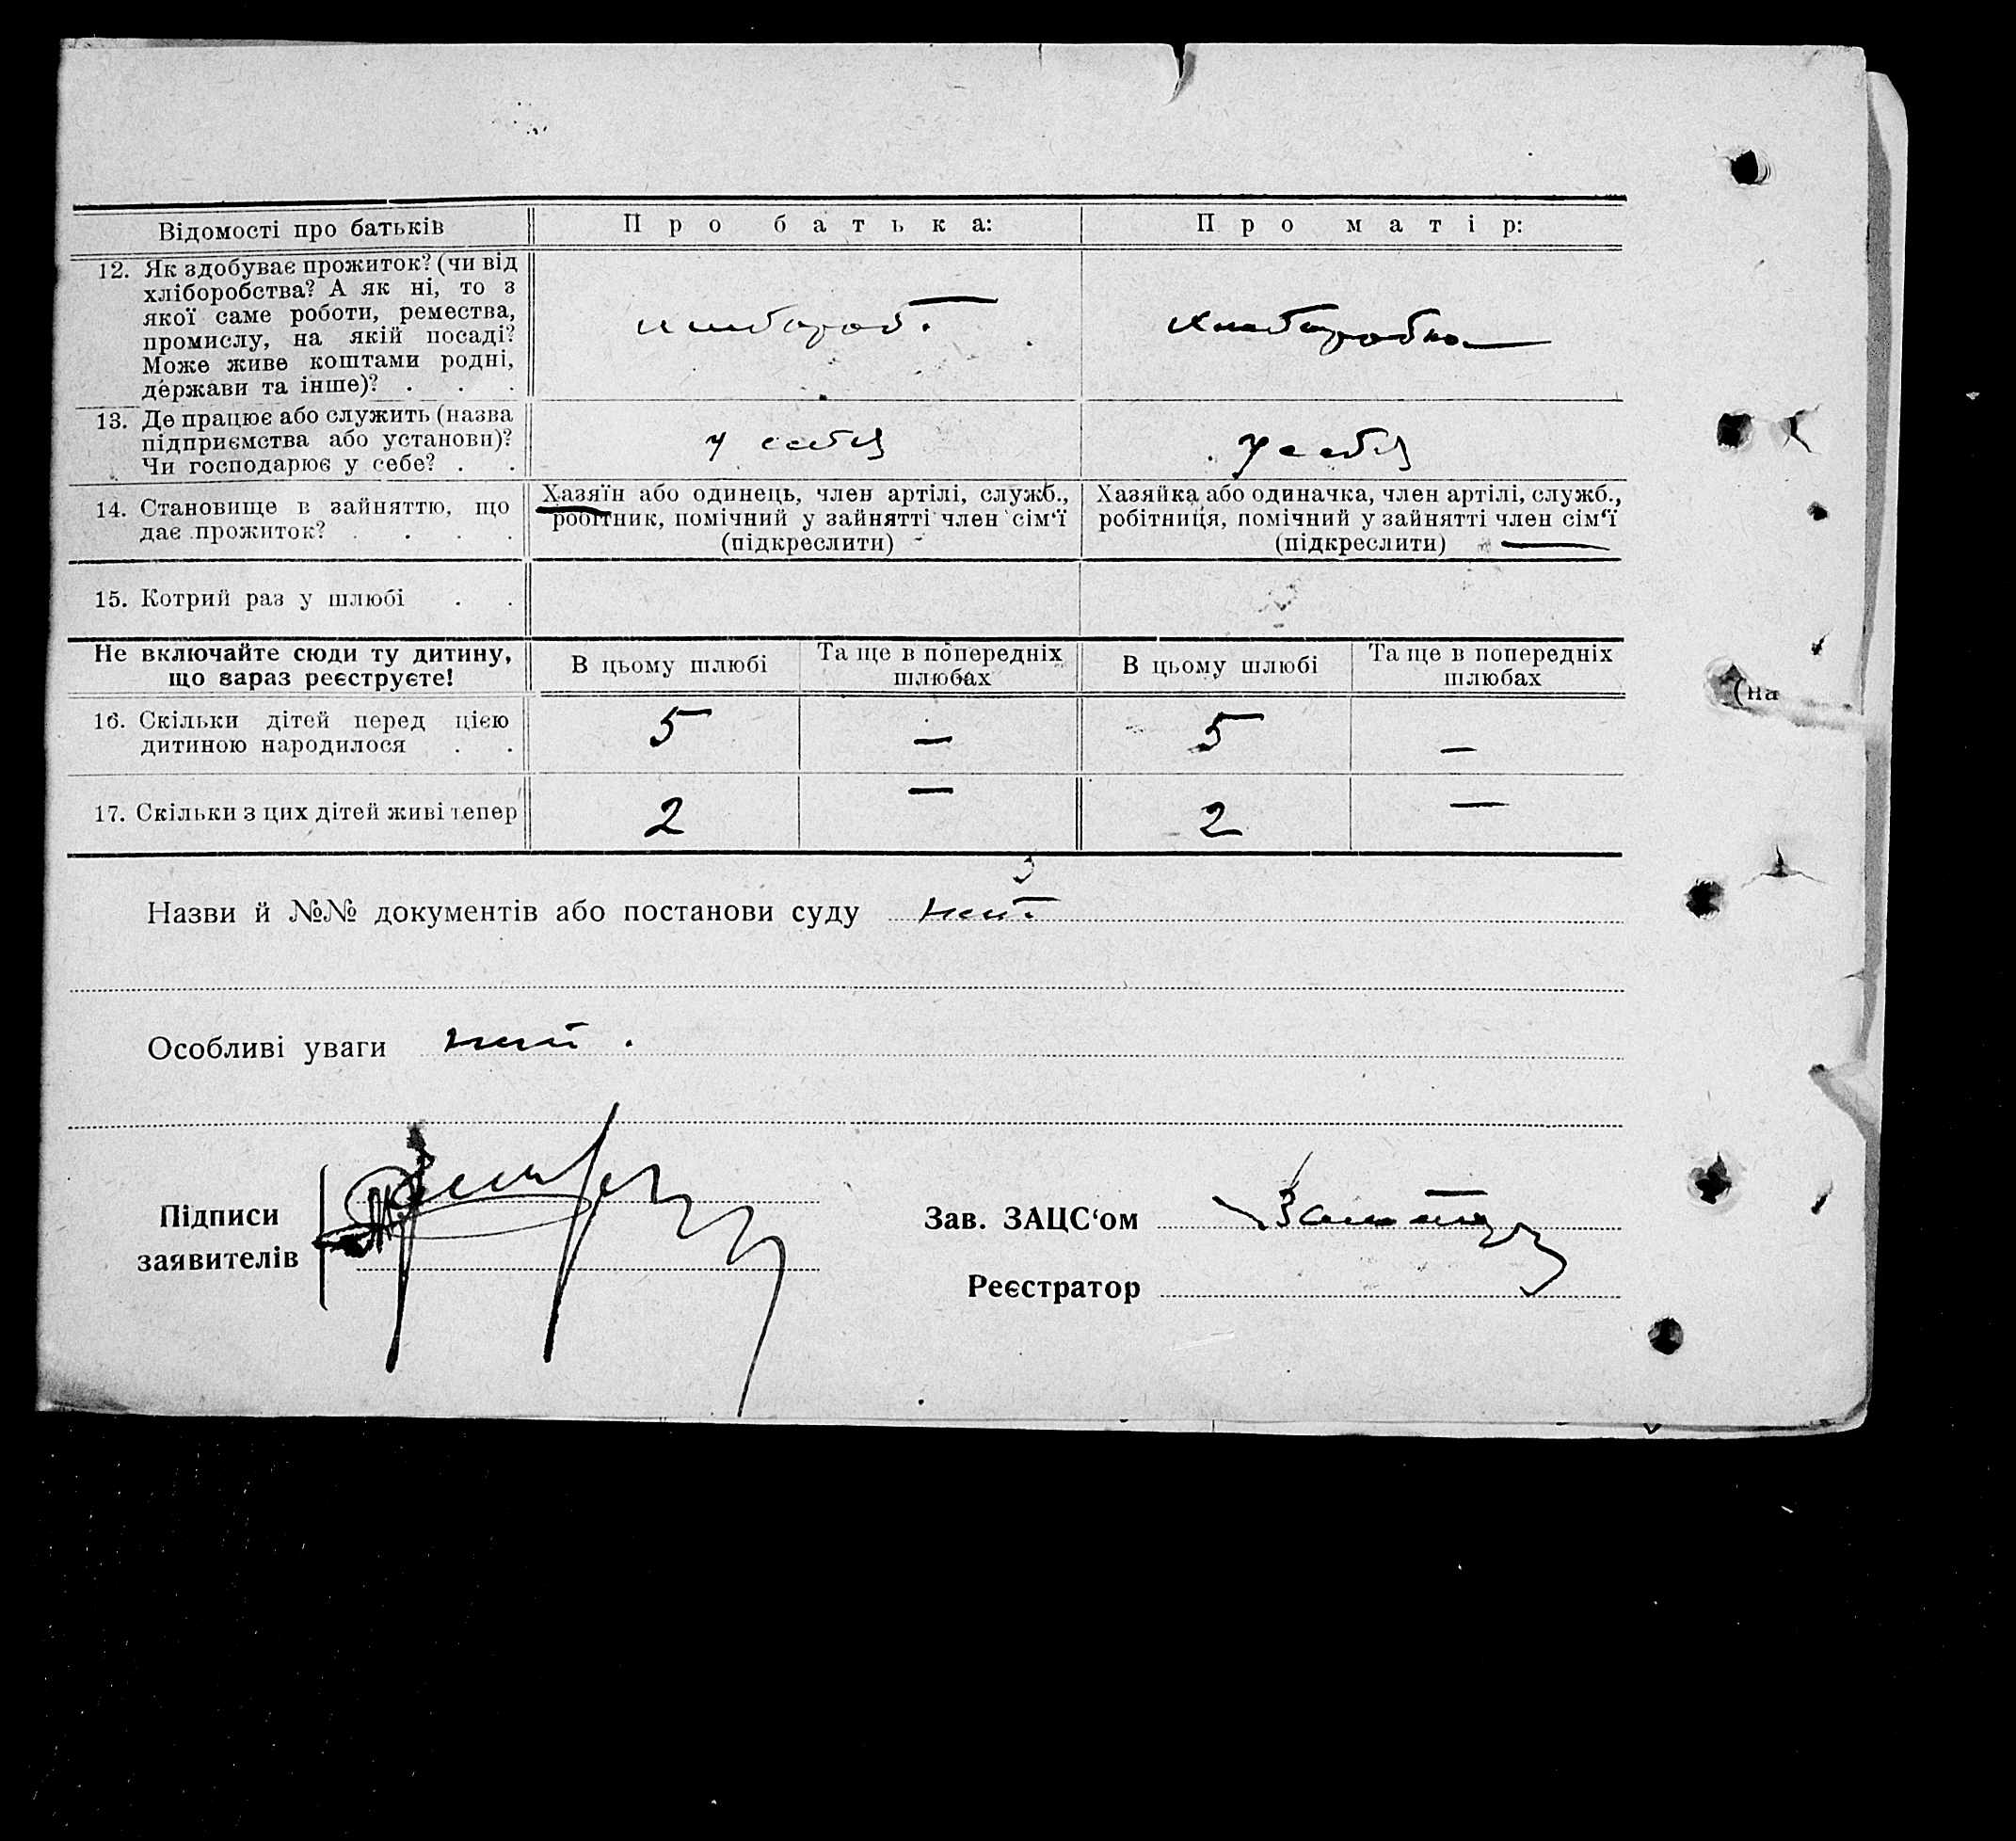 Відомості про батьків
Про батька:
Про матір:
12. Як здобуває прожиток? (чи від
хліборобства? А як ні, то з
якої саме роботи, ремества,
промислу, на якій посаді?
Може живе коштами родні,
держави та інше)? . . .
хлібороб.
хліборобка
13. Де працює або служить (назва
підприємства або установи)?
Чи господарює у себе? . .
у себя
у себя
14. Становище в зайняттю, що
дає прожиток? . . . .
Хазяїн або одинець, член артілі, служб.,
робітник, помічний у зайнятті член сім‘ї
(підкреслити)
Хазяйка або одиначка, член артілі, служб.,
робітниця, помічний у зайнятті член сім‘ї
(підкреслити)
15. Котрий раз у шлюбі . .
Не включайте сюди ту дитину,
що зараз реєструєте!
В цьому шлюбі
Та ще в попередніх
шлюбах
В цьому шлюбі
Та ще в попередніх
шлюбах
(на
16. Скільки дітей перед цією
дитиною народилося . .
5 — 5 —
17. Скільки з цих дітей живі тепер
2 — 2 —
Назви й №№ документів або постанови суду
Особливі уваги
Підписи
заявителів
Зав. ЗАЦС‘ом
Реєстратор